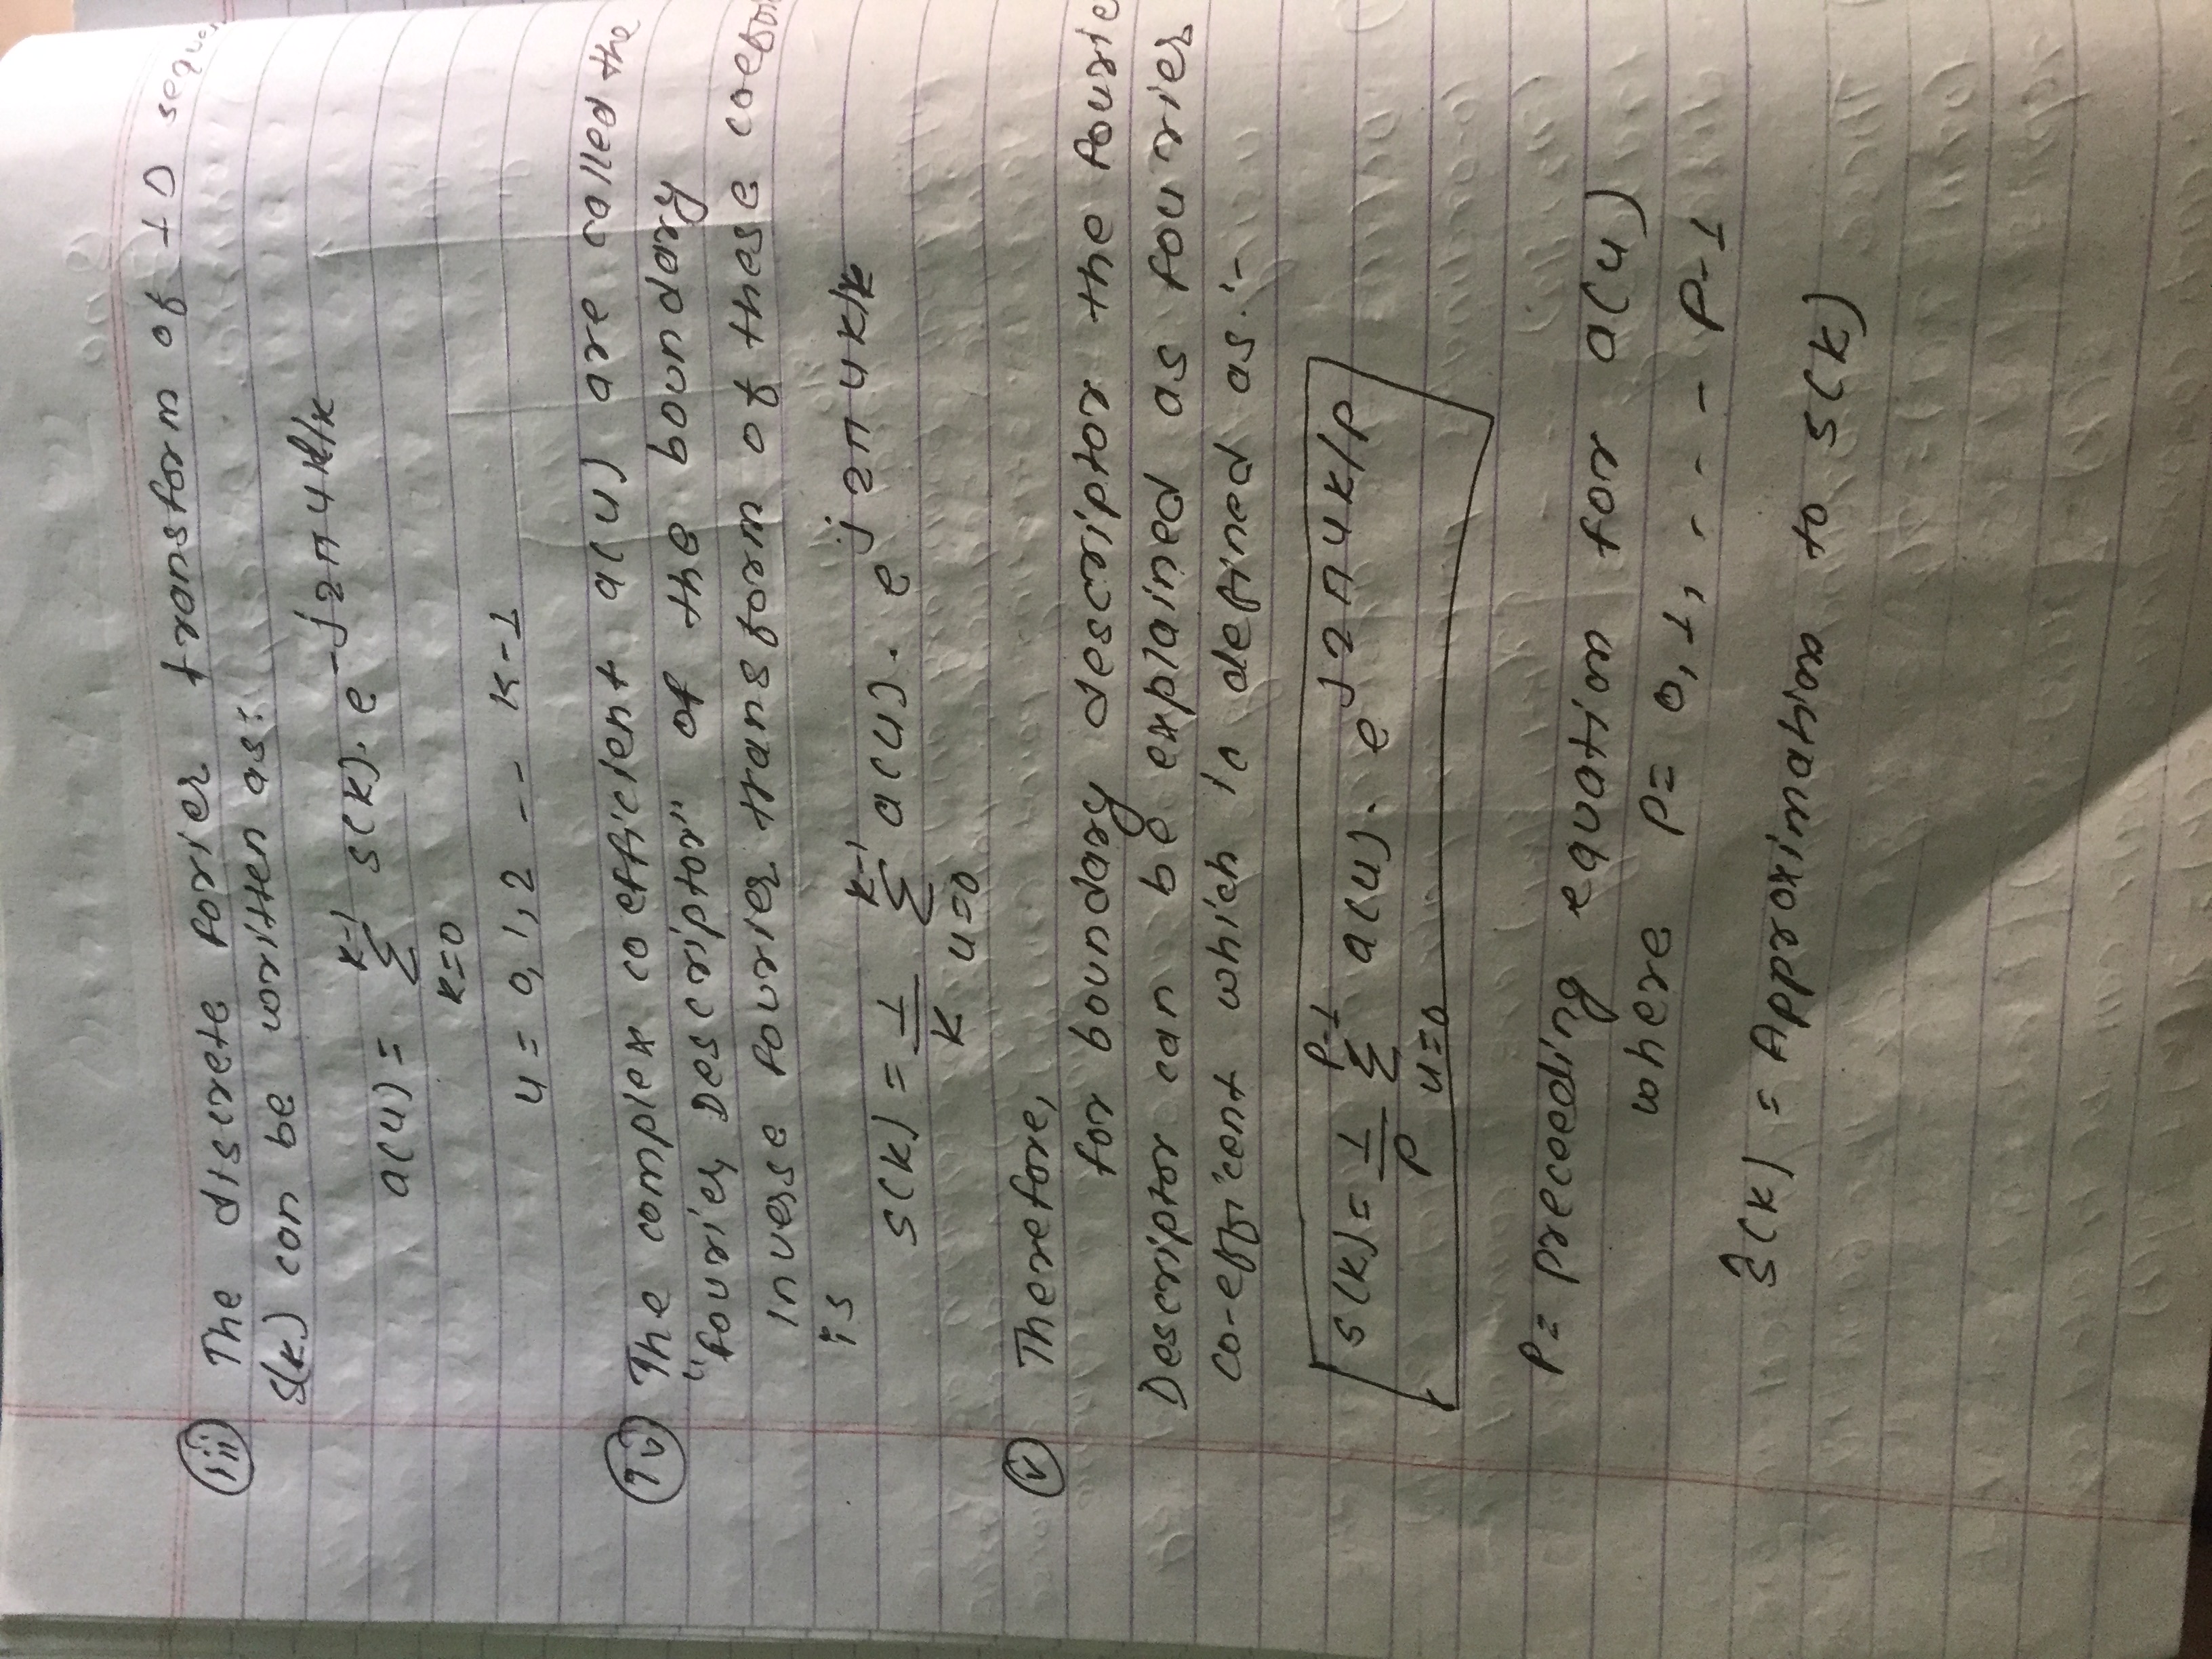 (iii) The discrete forier transform of 1D
s(k) can be written as:
a(u) = K-1 Σ k=0 s(k). e^-j2πuk/K
u = 0,1,2 -- K-1
(iv) The complex coefficient a(u) are called the
"fourier Descriptor" of the boundary
Inverse fourier transform of these
is
s(k) = 1/K K-1 Σ u=0 a(u). e^j2πuk/K
(v) Therefore,
for boundary descriptor the fourie
Descriptor can be explained as fourier
co-efficent which is defined as:-
s(k) = 1/P P-1 Σ u=0 a(u). e^j2πuk/P
P= preceeding equation for a(u)
where P= 0,1, - - - P-1
ŝ(k) = Approximation to s(k)